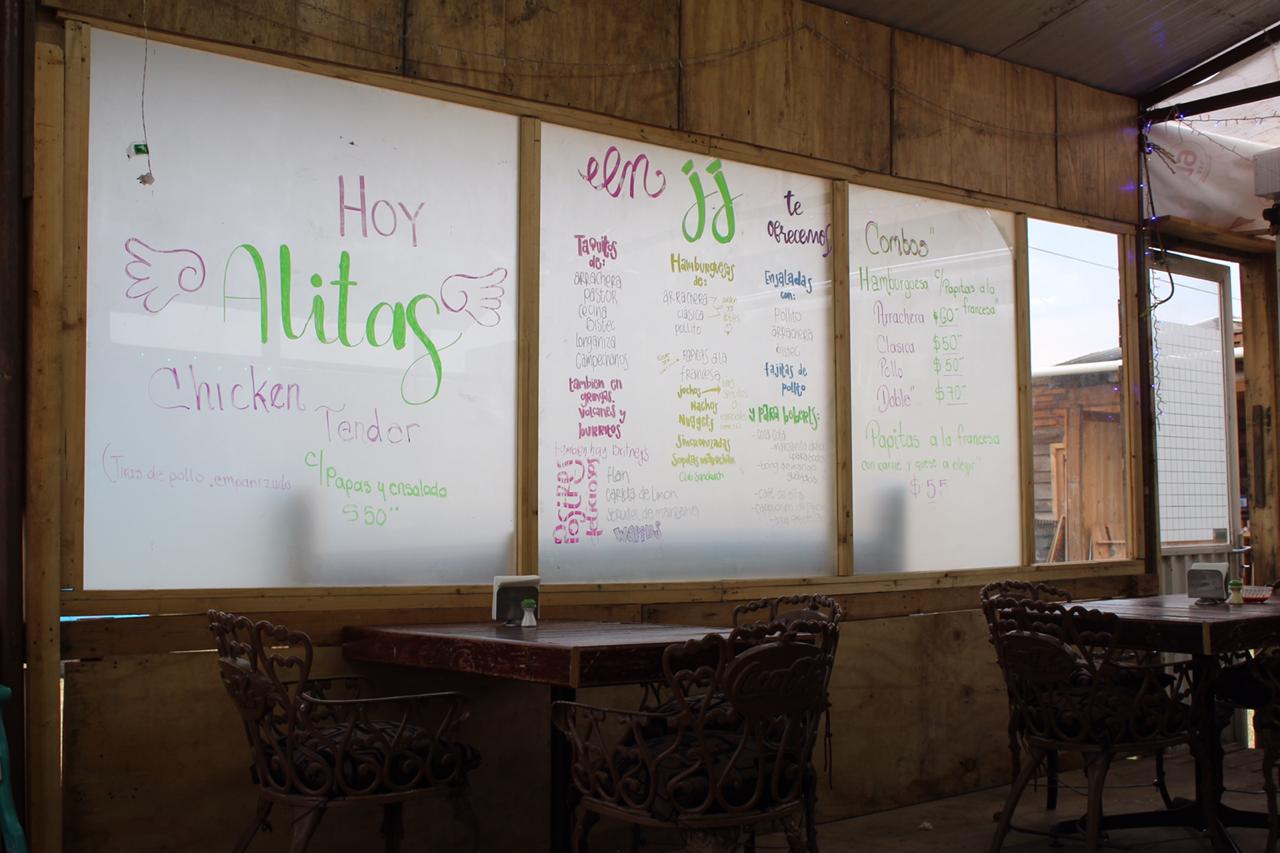 Hoy
Alitas
Chicken
Tender
(Tiras de pollo empanizado
c/Papas y ensalada
$50.00
en
jj
te
ofrecemos
Taquitos
de:
arrachera
pastor
cecina
Bistec
longaniza
Campechanos
tambien en
gringas
volcanes y
burritos
tambien hay Britneys
Flan
carlota de limon
strudel de manzana
waffles
Hamburguesas
de:
arrachera
clasica
pollito
papitas a la
francesa
jochos
Nachos
Nuggets
Sincronizadas
Club Sandwich
Ensaladas
con:
Pollito
arrachera
bistec
fajitas de
pollito
y para beberls:
- coca cola
Combos"
Hamburguesa c/Papitas a la
francesa"
Arrachera $60
Clasica $50
Pollo $50
Doble" $70
Papitas a la francesa
con carne y queso a elegir"
$55